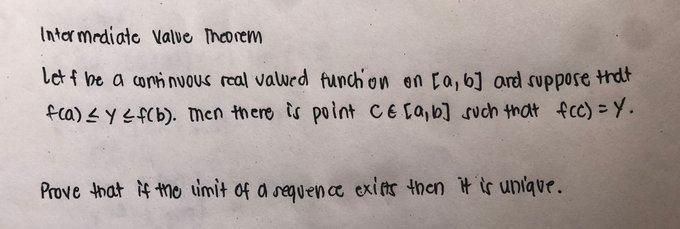 Intermediate Value Theorem
Let f be a continuous real valued function on [a,b] and suppose that
f(a) ≤ y ≤ f(b). Then there is point C ∈ [a,b] such that f(c) = y.
Prove that if the limit of a sequence exists then it is unique.